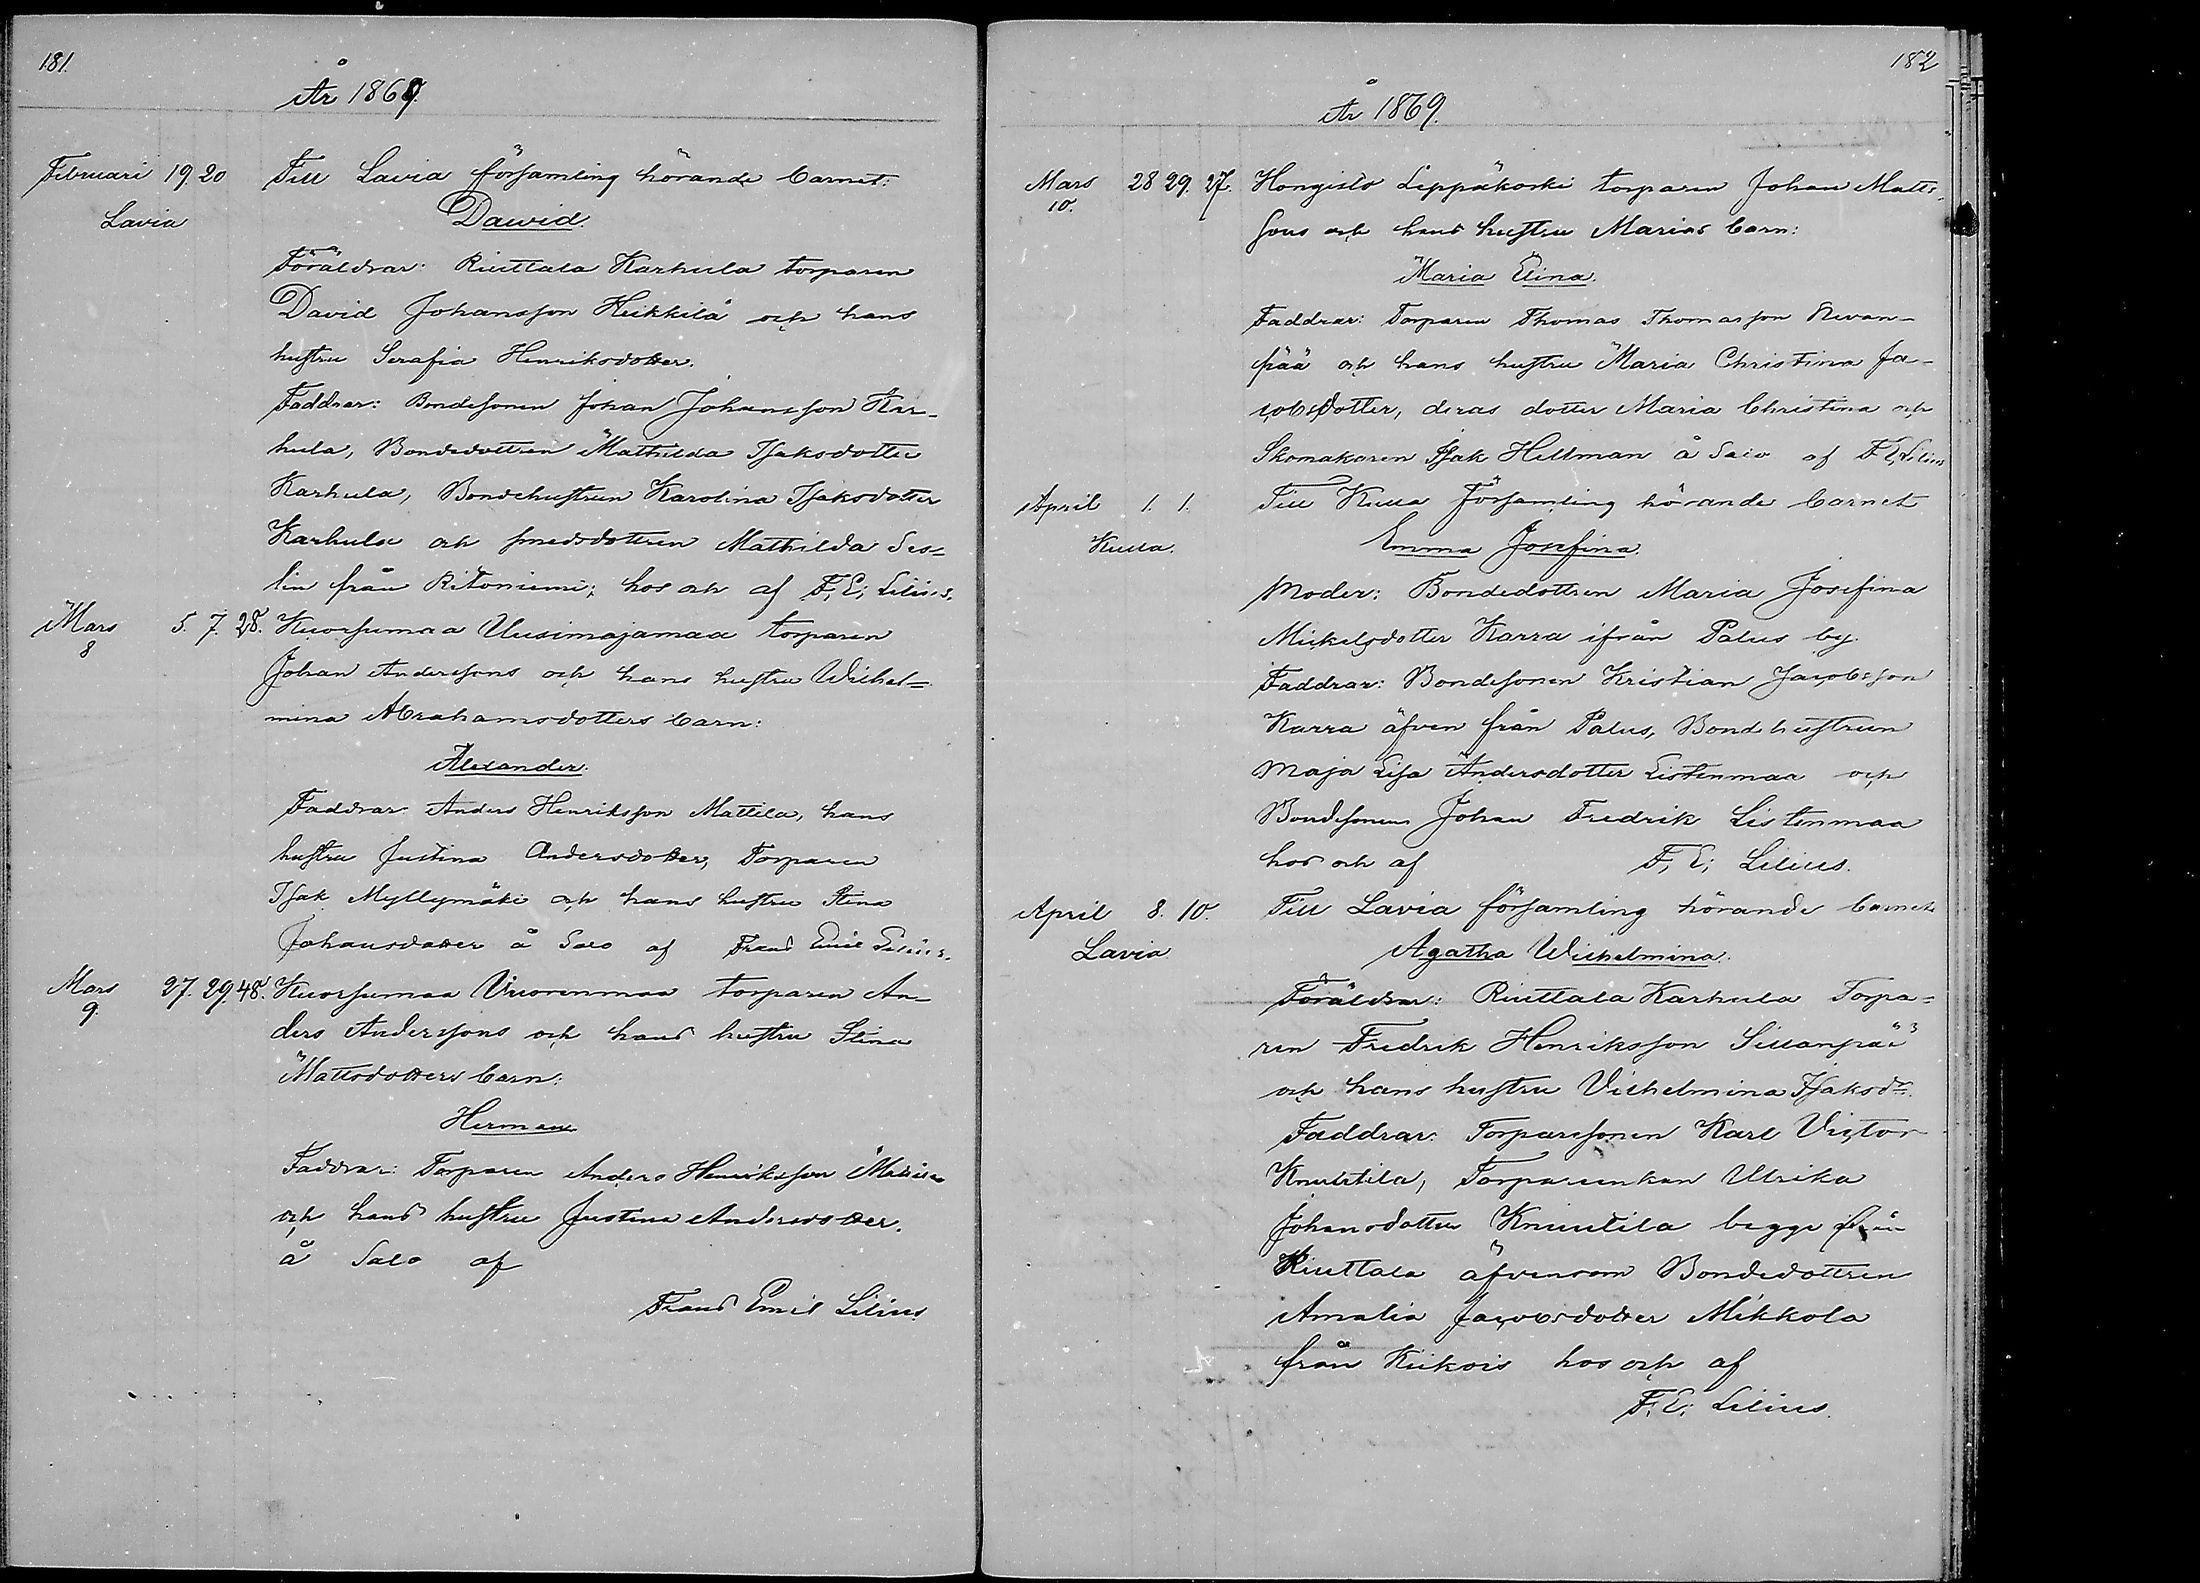 181.
År 1869.
Februari 19. 20 Till Lavia församling hörande barnet:
Lavia Dawid.
Föräldrar: Riuttala Karhula torparen
David Johansson Heikkilä och hans
hustru Serafia Henriksdotter.
Faddrar: Bondesonen Johan Johansson Kar-
hula, Bondedottren Mathilda Isaksdotter
Karhula, Bondehustrun Karolina Isaksdotter
Karhula och smedsdottren Mathilda Ses-
lin från Ritoniemi; hos och af F. E. Lilius.
Mars 5. 7. 28. Kuorsumaa Uusimajamaa torparen
8 Johan Anderssons och hans hustru Wilhel-
mina Abrahamsdotters barn:
Alexander.
Faddrar: Anders Henriksson Mattila, hans
hustru Justina Andersdotter, Torparen
Isak Myllymäki och hans hustru Stina
Johansdotter å Salo af Frans Emil Lilius.
Mars 27. 29. 48. Kuorsumaa Vuorenmaa torparen An-
9. ders Anderssons och hans hustru Stina
Mattsdotters barn:
Herman
Faddrar: Torparen Anders Henriksson Mattila
och hans hustru Justina Andersdotter.
å Salo af
Frans Emil Lilius.
182
År 1869.
Mars 28 29. 27. Hongisto Leppäkoski torparen Johan Matts-
10. sons och hans hustru Marias barn:
Maria Elina.
Faddrar: Torparen Thomas Thomasson
pää och hans hustru Maria Christina Ja-
cobsdotter, deras dotter Maria Christina och
Skomakaren Isak Hellman å Salo af F. E. Lilius
April 1. 1. Till Kulla Församling hörande barnet
Kulla. Emma Josefina.
Moder: Bondedottren Maria Josefina
Mickelsdotter Karra ifrån Palus by.
Faddrar: Bondesonen Kristian Jacobsson
Karra äfven från Palus, Bondhustrun
Maja Lisa Andersdotter Listenmaa och
Bondesonen Johan Fredrik Listenmaa
hos och af F. E. Lilius.
April 8. 10. Till Lavia församling hörande barnet
Lavia Agatha Wilhelmina.
Föräldrar: Riuttala Karhula Torpa-
ren Fredrik Henriksson Sillanpää
och hans hustru Vilhelmina Isaksdr.
Faddrar: Torparesonen Karl Victor
Knuutila, Torpareenkan Ulrika
Johansdotter Knuutila begge från
Riuttala äfvensom Bondedottren
Amalia Jacobsdotter Mikkola
från Kiikois hos och af
F. E. Lilius.